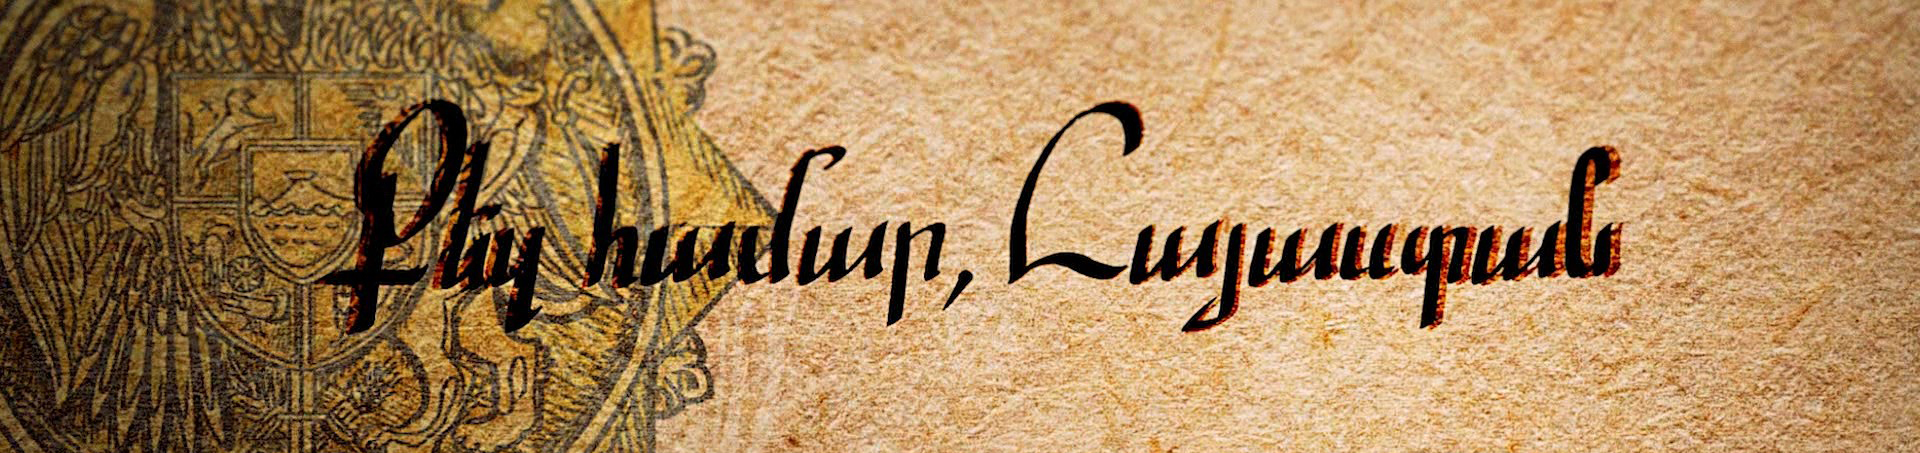 Քեզ համար, Հայաստան